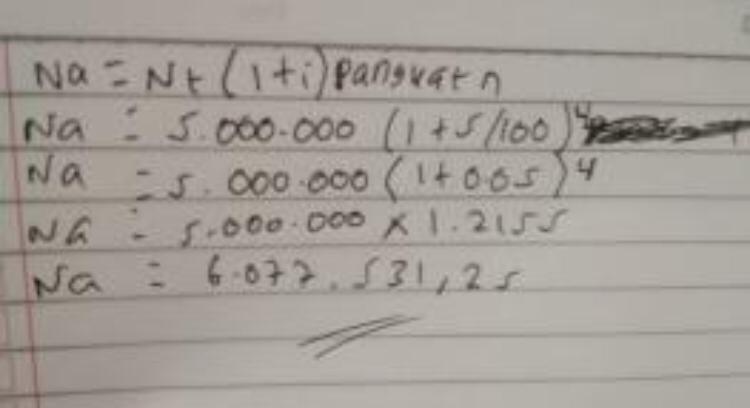 Na = Nt (1+i) Pangkat n
Na = 5.000.000 (1 + 5/100)⁴
Na = 5.000.000 (1+0.05)⁴
Na = 5.000.000 x 1.2155
Na = 6.077.531,25